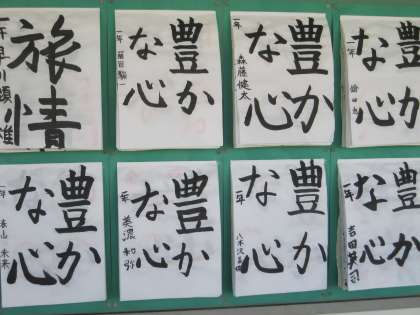 旅情
一年 早川
豊か
な心
一年
豊か
な心
一年 森藤健太
豊か
な心
一年
豊か
な心
一年 未来
豊か
な心
一年 美濃和弥
豊か
な心
一年 八木沢
豊か
な心
一年 吉田英司